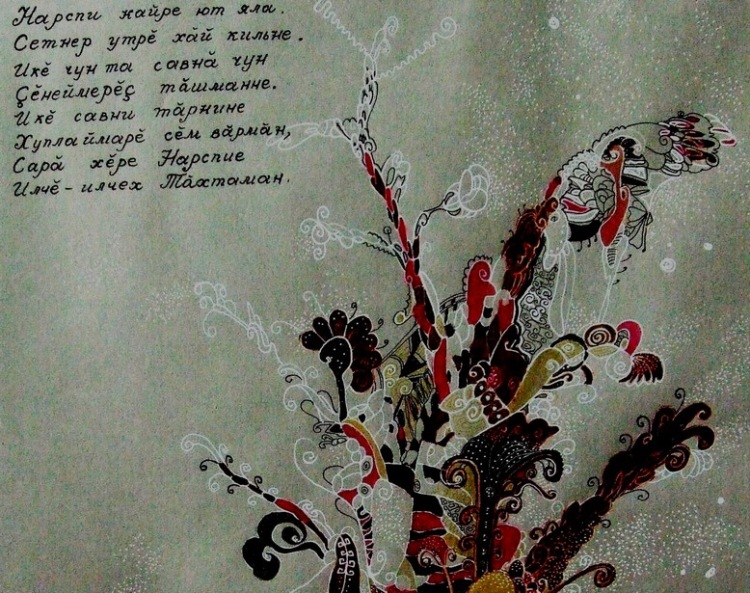 Нарспи кайре ют яла.
Сетнер утрĕ хăй килне.
Икĕ чун та савнă чун
Çĕнеймерĕç тăшманне.
Икĕ савни тăрнине
Хуплаймарĕ сĕм вăрман,
Сарă хĕре Нарспие
Илчĕ-илчех Тăхтаман.